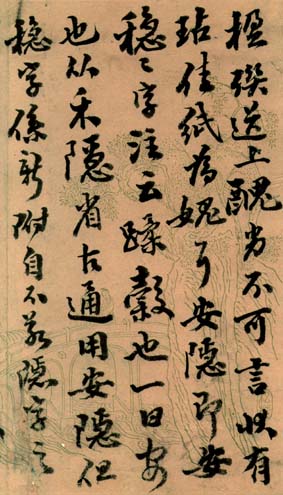 楹送上醜劣不可言狀有
玷佳紙為媿耳安隱即安
穩〻字注云蹂穀也一曰安
也从禾隱省古通用安隱但
穩字係新附自不若隱字之